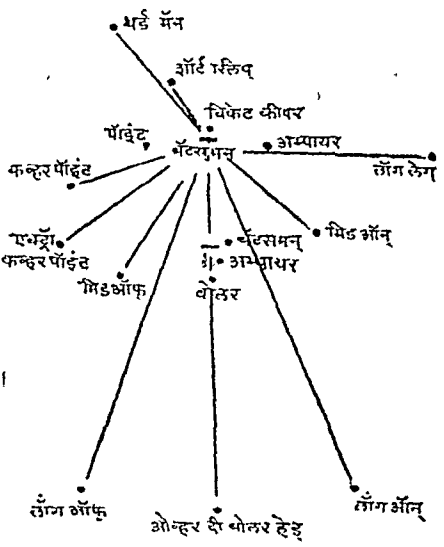 थर्ड मॅन
शॉर्ट स्लिप्
विकेट कीपर
पॉइंट
बॅटसमन्
अम्पायर
लॉग लेग
कव्हर पॉइंट
एक्स्ट्रॉ
कव्हर पॉइंट
बॅटसमन्
अम्पायर
बोलर
मिड ऑन्
मिड ऑफ्
लाँग ऑफ्
ओव्हर दी बोलर हेड्
लाँग ऑन्